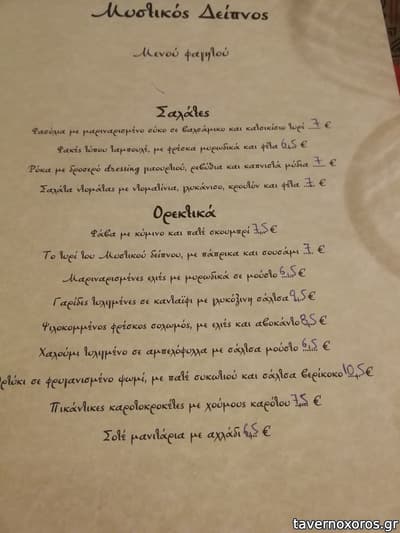 Μυστικός Δείπνος
Μενού φαγητού
Σαλάτες
Φασόλια με μαριναρισμένο σύκο σε βαλσάμικο και κατσικίσιο τυρί 7 €
Φακές τύπου ταμπουλέ, με φρέσκα μυρωδικά και φέτα 6,5 €
Ρόκα με δροσερό dressing γιαουρτιού, ρεβύθια και καπνιστά μύδια 7 €
Σαλάτα ντομάτας με ντοματίνια, γλυκάνισο, κρουτόν και φέτα 7 €
Ορεκτικά
Φάβα με κύμινο και πατέ σκουμπρί 7,5 €
Το τυρί του Μυστικού δείπνου, με πάπρικα και σουσάμι 7 €
Μαριναρισμένες ελιές με μυρωδικά σε μούστο 6,5 €
Γαρίδες τυλιγμένες σε κανταΐφι με γλυκόξινη σάλτσα 9,5 €
Ψιλοκομμένος φρέσκος σολωμός, με ελιές και αβοκάντο 8,5 €
Χαλούμι τυλιγμένο σε αμπελόφυλλα με σάλτσα μούστο 6,5 €
ρτύκι σε φρυγανισμένο ψωμί, με πατέ συκωτιού και σάλτσα βερίκοκο 10,5 €
Πικάντικες καροτοκροκέτες με χούμους καρότου 7,5 €
Σοτέ μανιτάρια με αχλάδι 6,5 €
tavernoxoros.gr